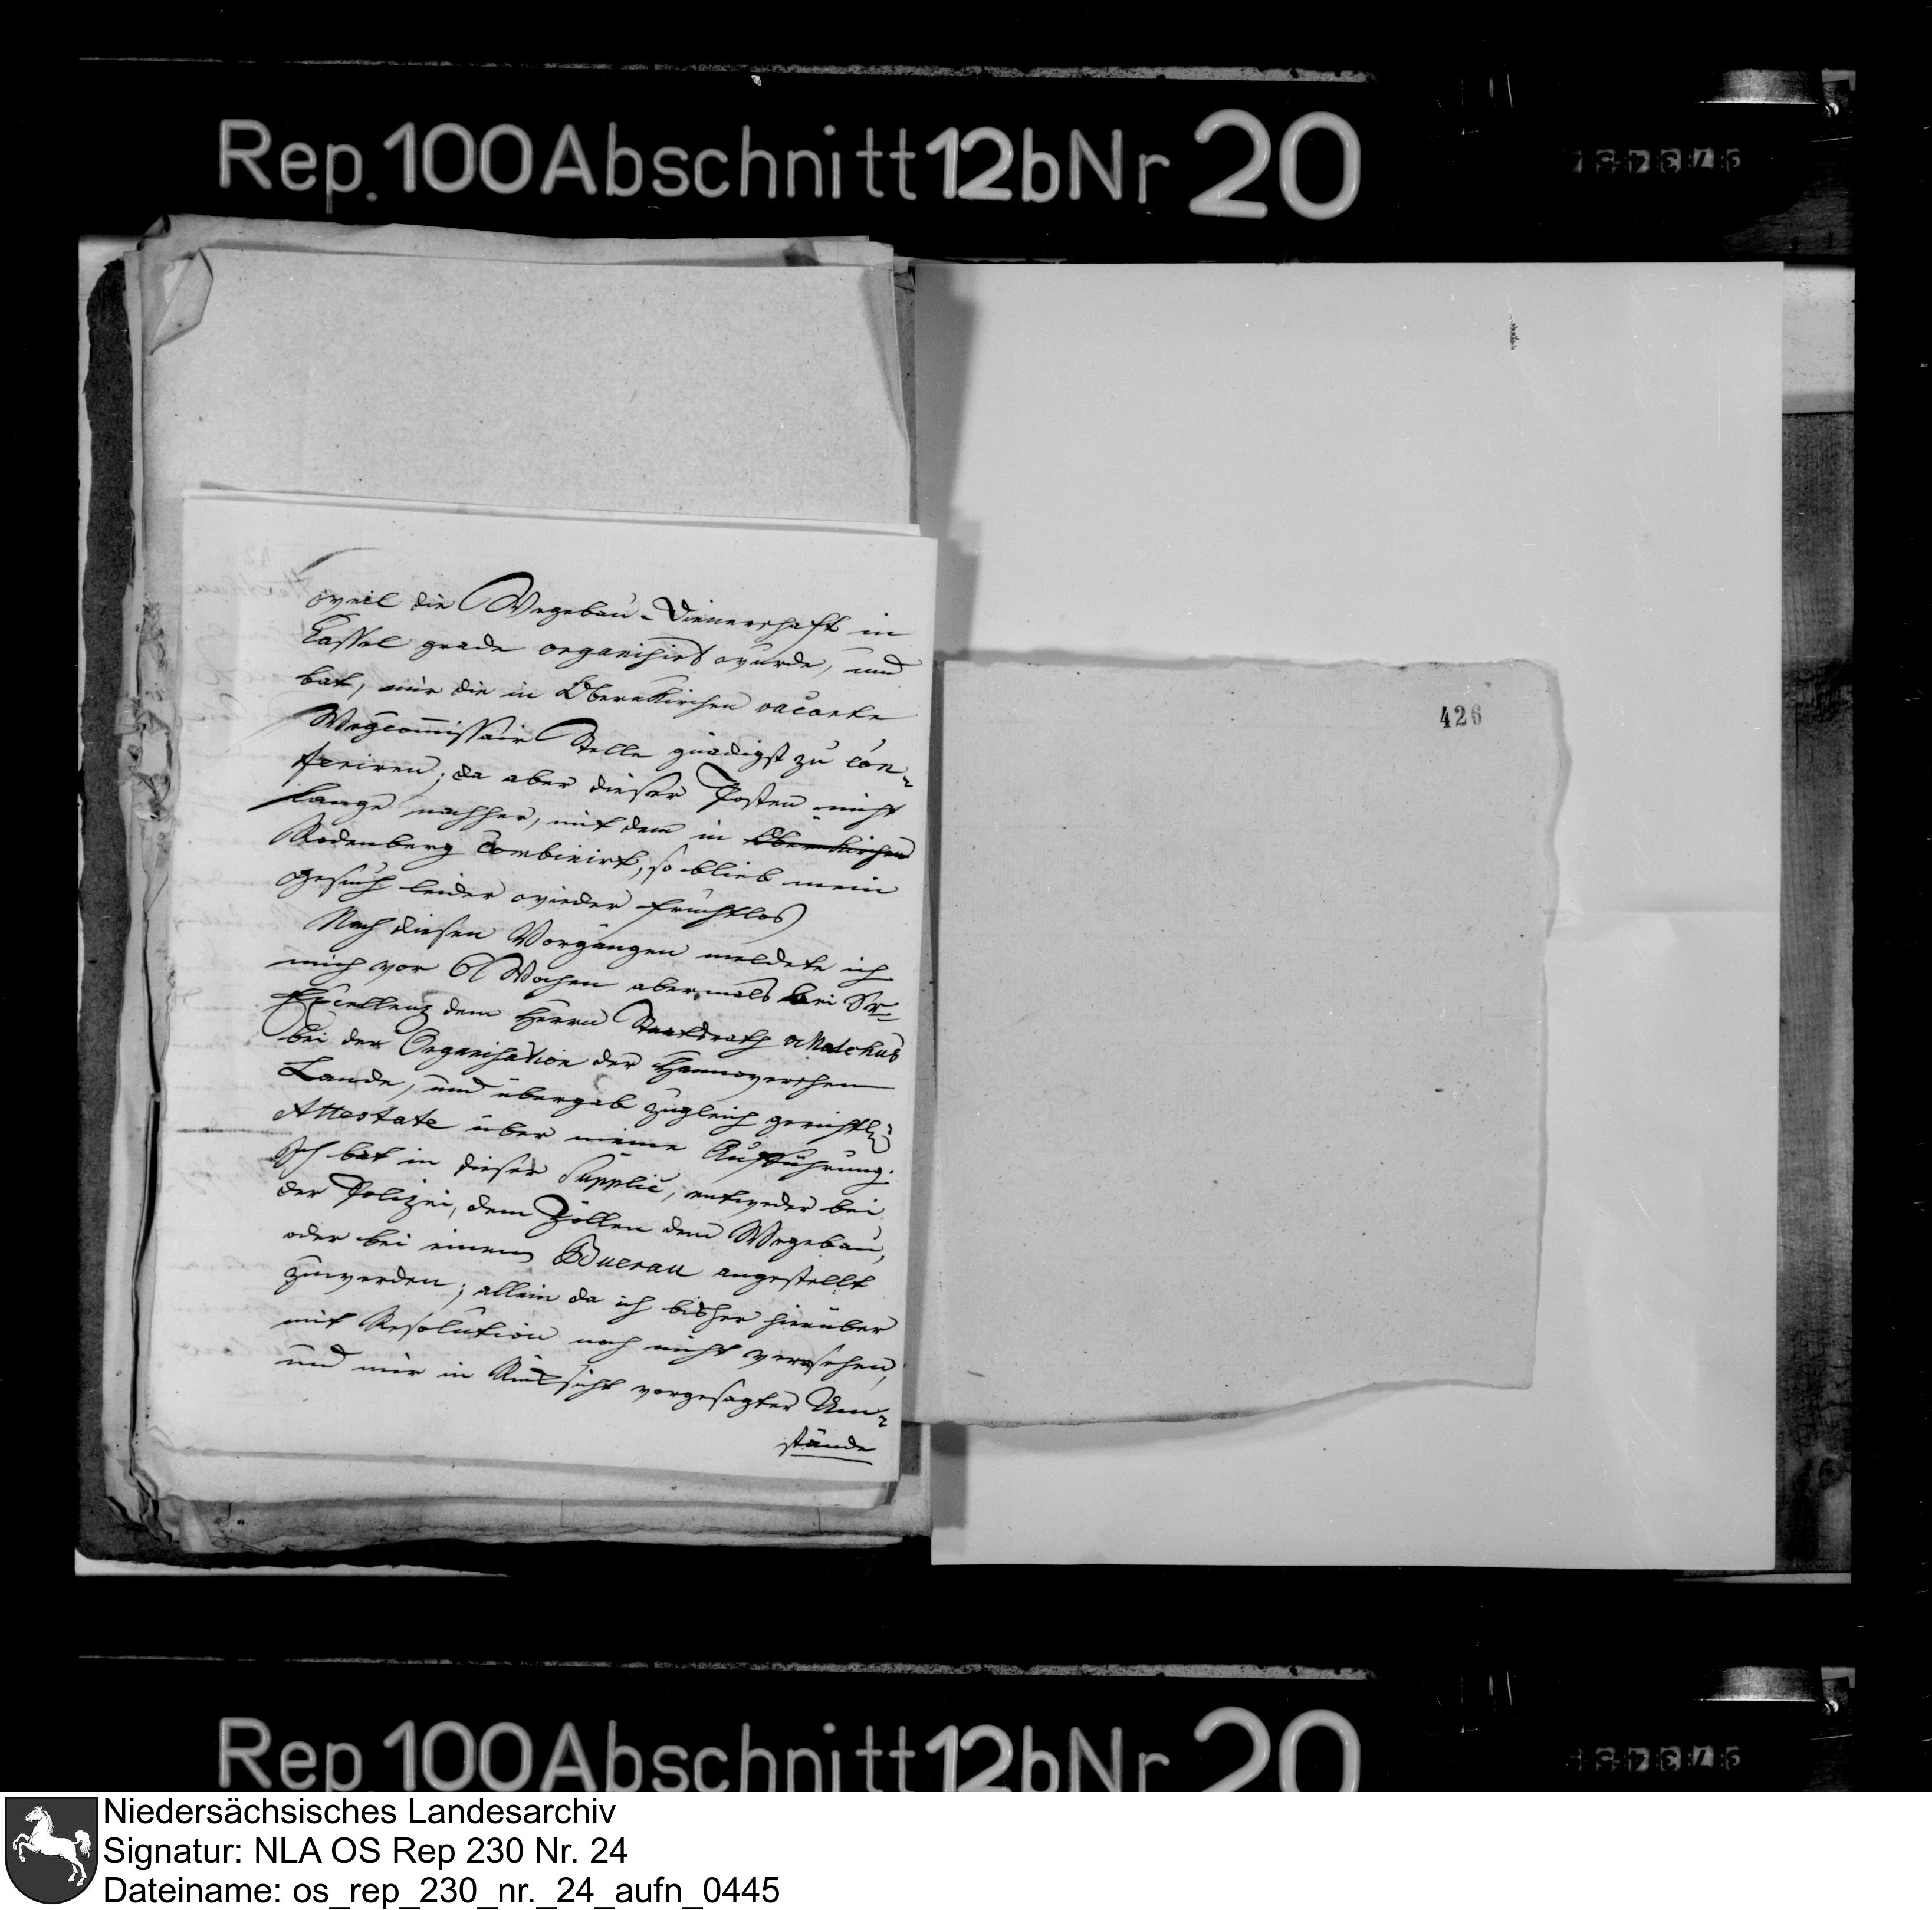 Rep. 100 Abschnitt 12b Nr 20
weil die Wegebau-Dienerschaft in
Cassel grade organisirt wurde, und
bat, mir die in Obernkirchen vacante
Wegcom̄issair Stelle gnädigst zu con-
feriren; da aber dieser Posten nicht
lange nachher, mit dem in Obernkirchen
Rodenberg combinirt, so blieb mein
Gesuch leider wieder fruchtlos
Nach diesen Vorgängen meldete ich
mich vor 6 Wochen abermals bei Sr
Excellenz dem Herrn Staatsrath v Malchus
bei der Organisation der Hannoverschen
Lande, und übergab zugleich gerichtl:
Attestate über meine Aufführung.
Ich bat in dieser Supplic, entweder bei
der Polizei, dem Zöllen dem Wegebau,
oder bei einem Buerau angestellt
zuwerden; allein da ich bisher hierüber
mit Resolution noch nicht versehen,
und mir in Rücksicht vorgesagter Um-
stände
426
Rep 100 Abschnitt 12b Nr 20
Niedersächsisches Landesarchiv
Signatur: NLA OS Rep 230 Nr. 24
Dateiname: os_rep_230_nr._24_aufn_0445